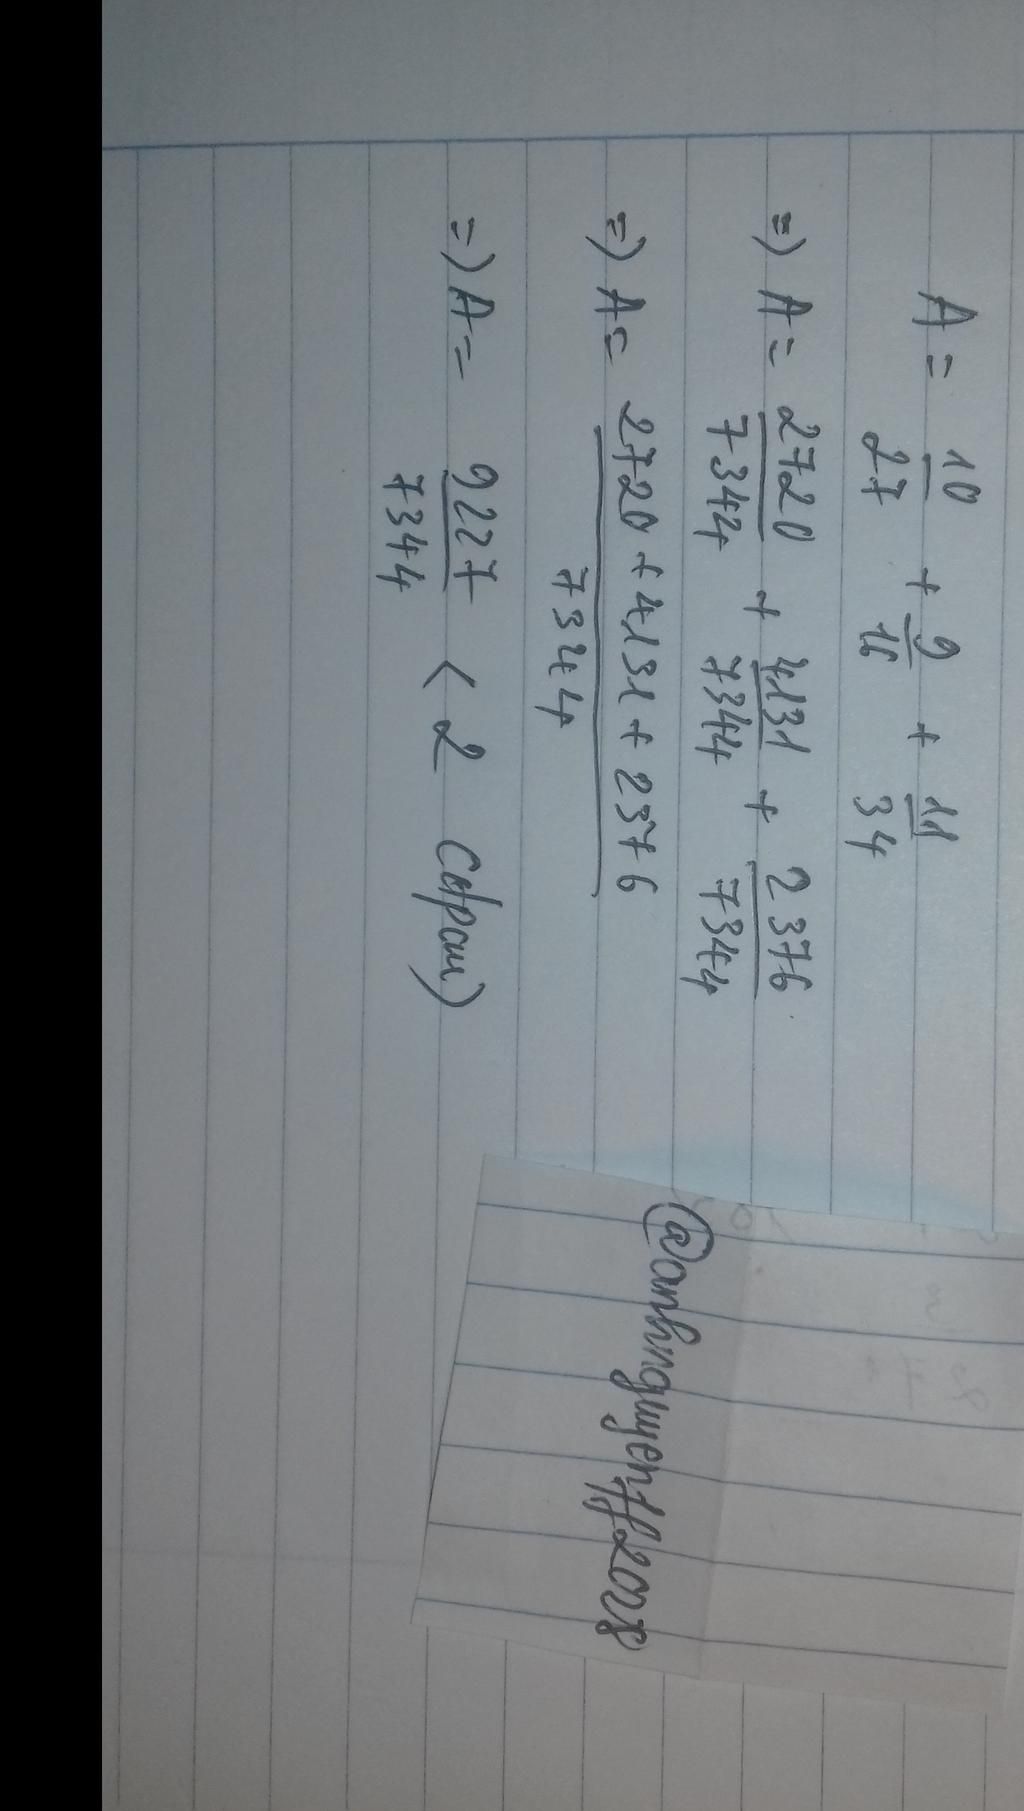 A = 10/27 + 9/16 + 11/34
=) A = 2720/7344 + 4131/7344 + 2376/7344
=) A = 2720 + 4131 + 2376 / 7344
=) A = 9227/7344 < 2 (đpcm)
@anhnguyen7f2008